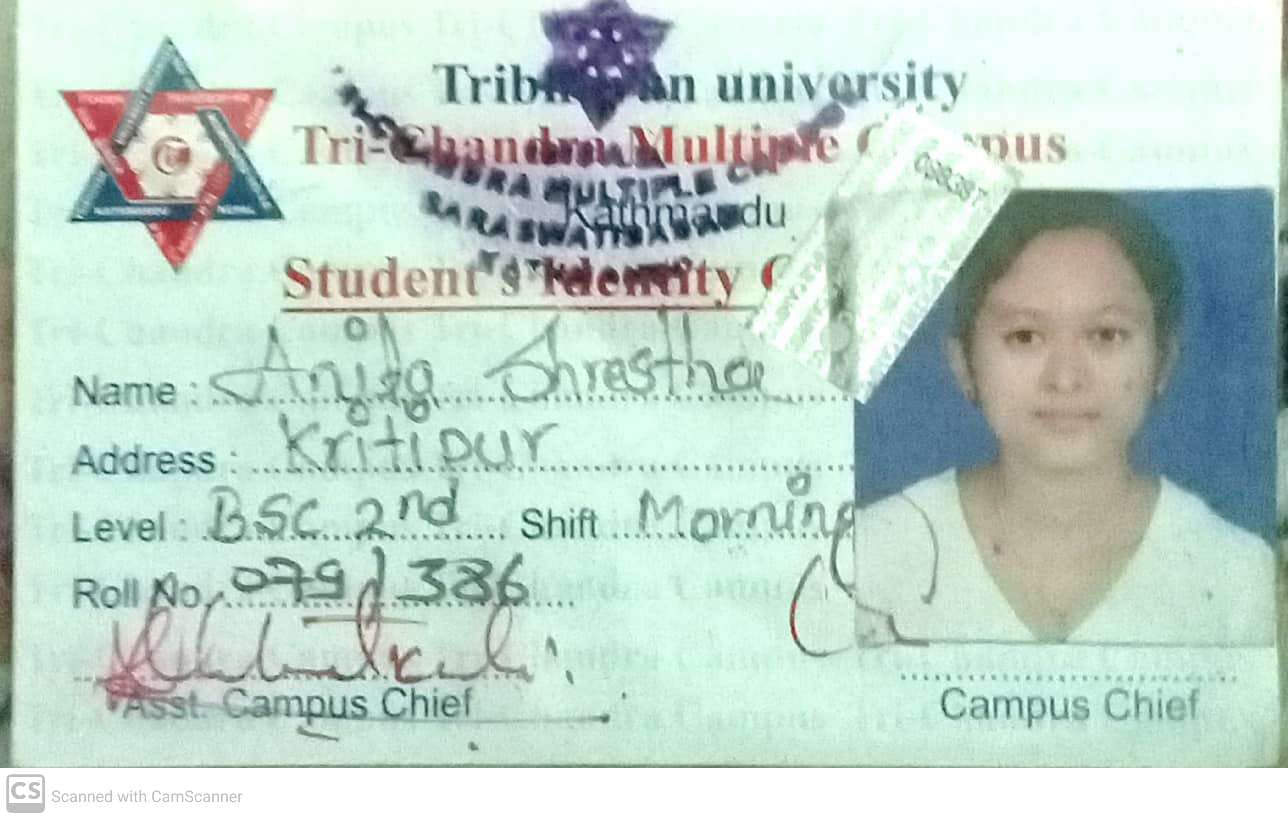 Tribhuvan university
Tri-Chandra Multiple Campus
Kathmandu
Student's Identity C
Name : Anita Shrestha
Address : Kritipur
Level : BSC 2nd Shift Morning
Roll No. 079/386
Asst. Campus Chief
Campus Chief
CS Scanned with CamScanner